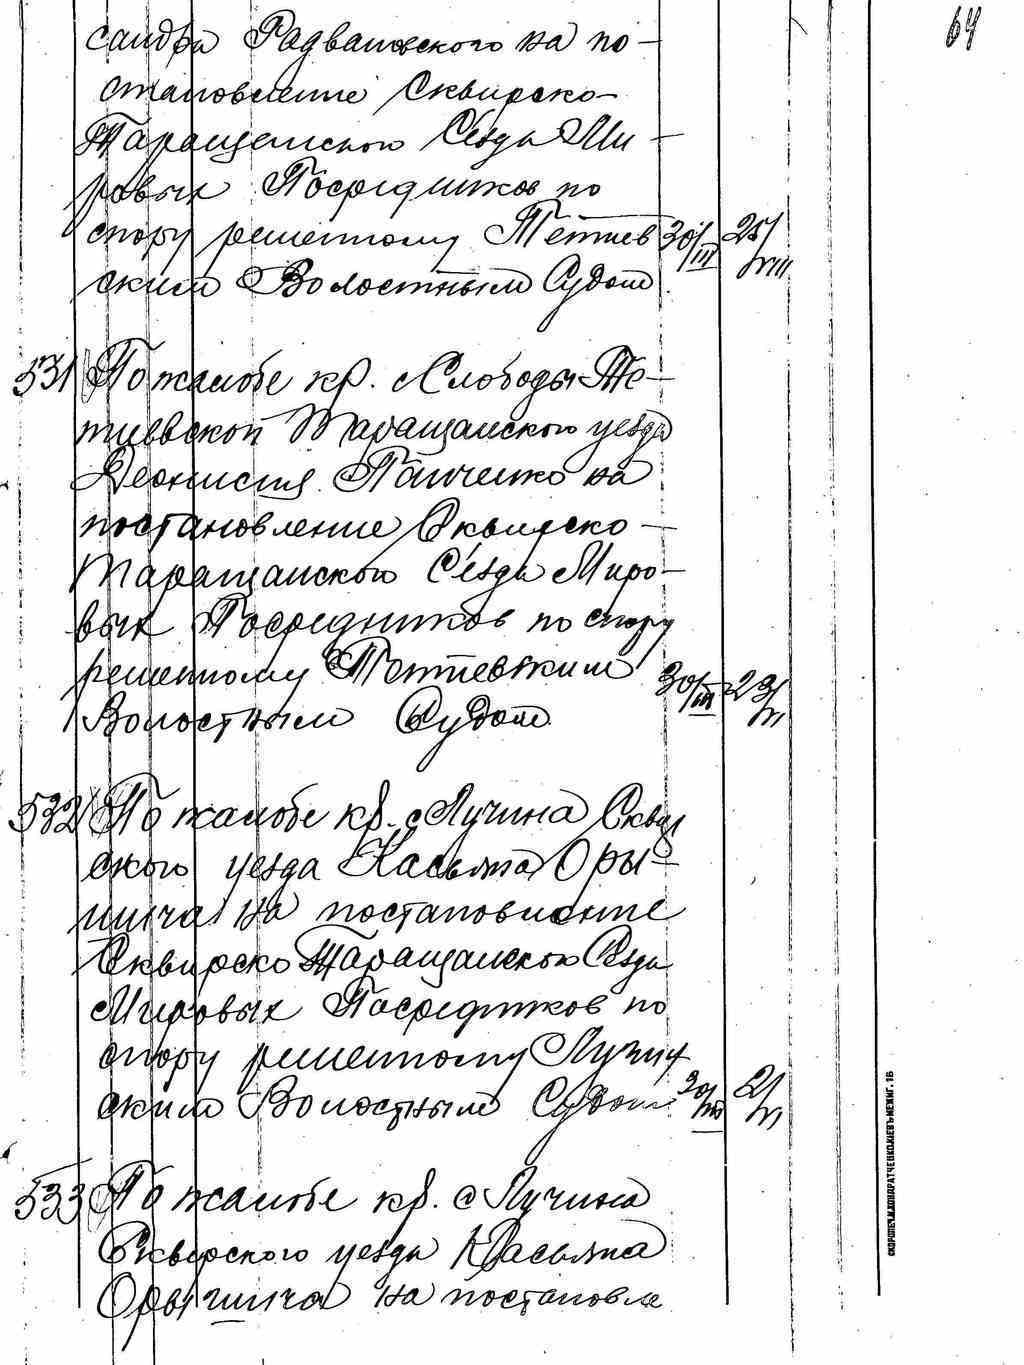 64
сандра Радвановского на по-
становление Сквирско-
Таращанского Съезда Ми-
ровых Посредников по
спору решенному Тетиев 30/III 25/VIII
ским Волостным Судом
531 По жалобе кр. Слободы Те-
тиевской Таращанского уезда
Деонисия Панченко на
постановление Сквирско-
Таращанского Съезда Миро-
вых Посредников по спору
решенному Тетиевским 30/III 23/VI
Волостным Судом
532 По жалобе кр. с Лучина Сквир
ского уезда Касьяна Оры-
нича на постановление
Сквирско Таращанского Съезда
Мировых Посредников по
спору решенному Лучин
ским Волостным Судом 30/III 2/VI
533 По жалобе кр. с Лучина
Сквирского уезда Касьяна
на постановле